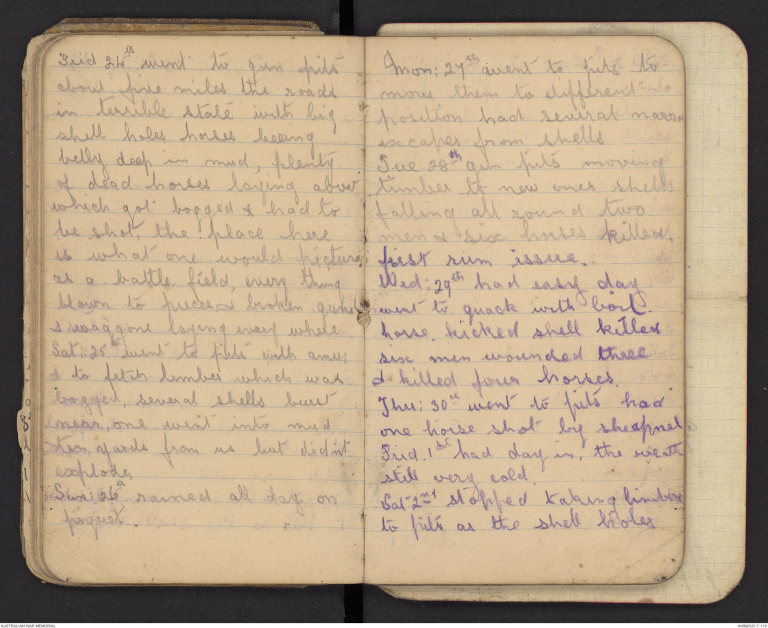 Frid 24th went to gun pits
about five miles the roads
in terrible state with big
shell holes horses beeing
belly deep in mud, plenty
of dead horses laying about
which got bogged & had to
be shot, the place here
is what one would picture
as a battle field, every thing
blown to pieces & broken guns
& waggons laying every where
Sat: 25th went to pits with amu:
& to fetch limber which was
bogged, several shells burst
near, one went into mud
ten yards from us but didn't
explode.
Sun: 26th rained all day on
piquet.
Mon: 27th went to pits to
move them to different
position had several narrow
escapes from shells
Tue 28th gun pits moving
timber to new ones shells
falling all round two
men & six horses killed.
first rum issue.
Wed: 29th had easy day
went to quack with boil.
horse kicked shell killed
six men wounded three
& killed four horses.
Thu: 30st went to pits had
one horse shot by sharpnel
Frid. 1st had day in, the weath
still very cold.
Sat 2nd stopped taking limbers
to pits as the shell holes
AUSTRALIAN WAR MEMORIAL